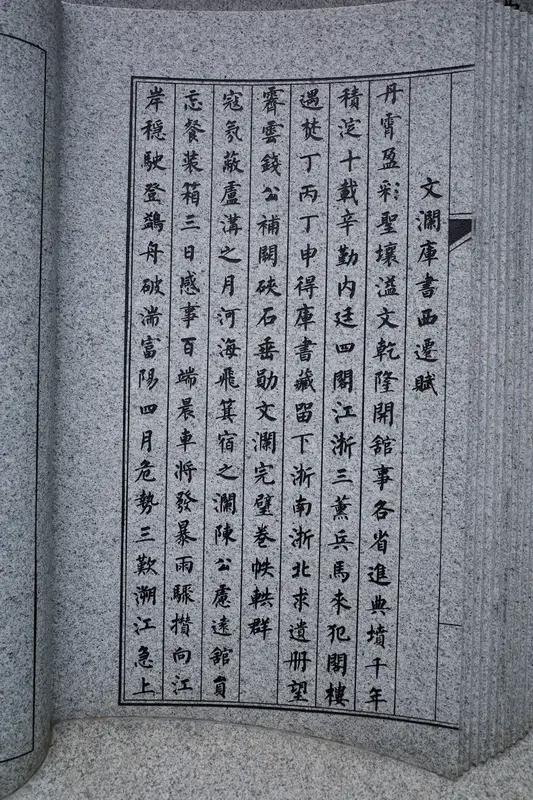 文瀾庫書西遷賦
丹霄盈彩聖壤溢文乾隆開舘事各省進典墳千年
積淀十載辛勤内廷四閣江浙三薰兵馬來犯閣樓
遇焚丁丙丁申得庫書藏留下浙南浙北求遺册望
霽雲錢公補闕硤石垂勛文瀾完璧卷帙軼群
寇氛蔽盧溝之月河海飛箕宿之瀾陳公慮遠舘員
忘餐装箱三日感事百端晨車將發暴雨驟攢向江
岸穩駛登鷁舟破湍富陽四月危勢三歎溯江急上